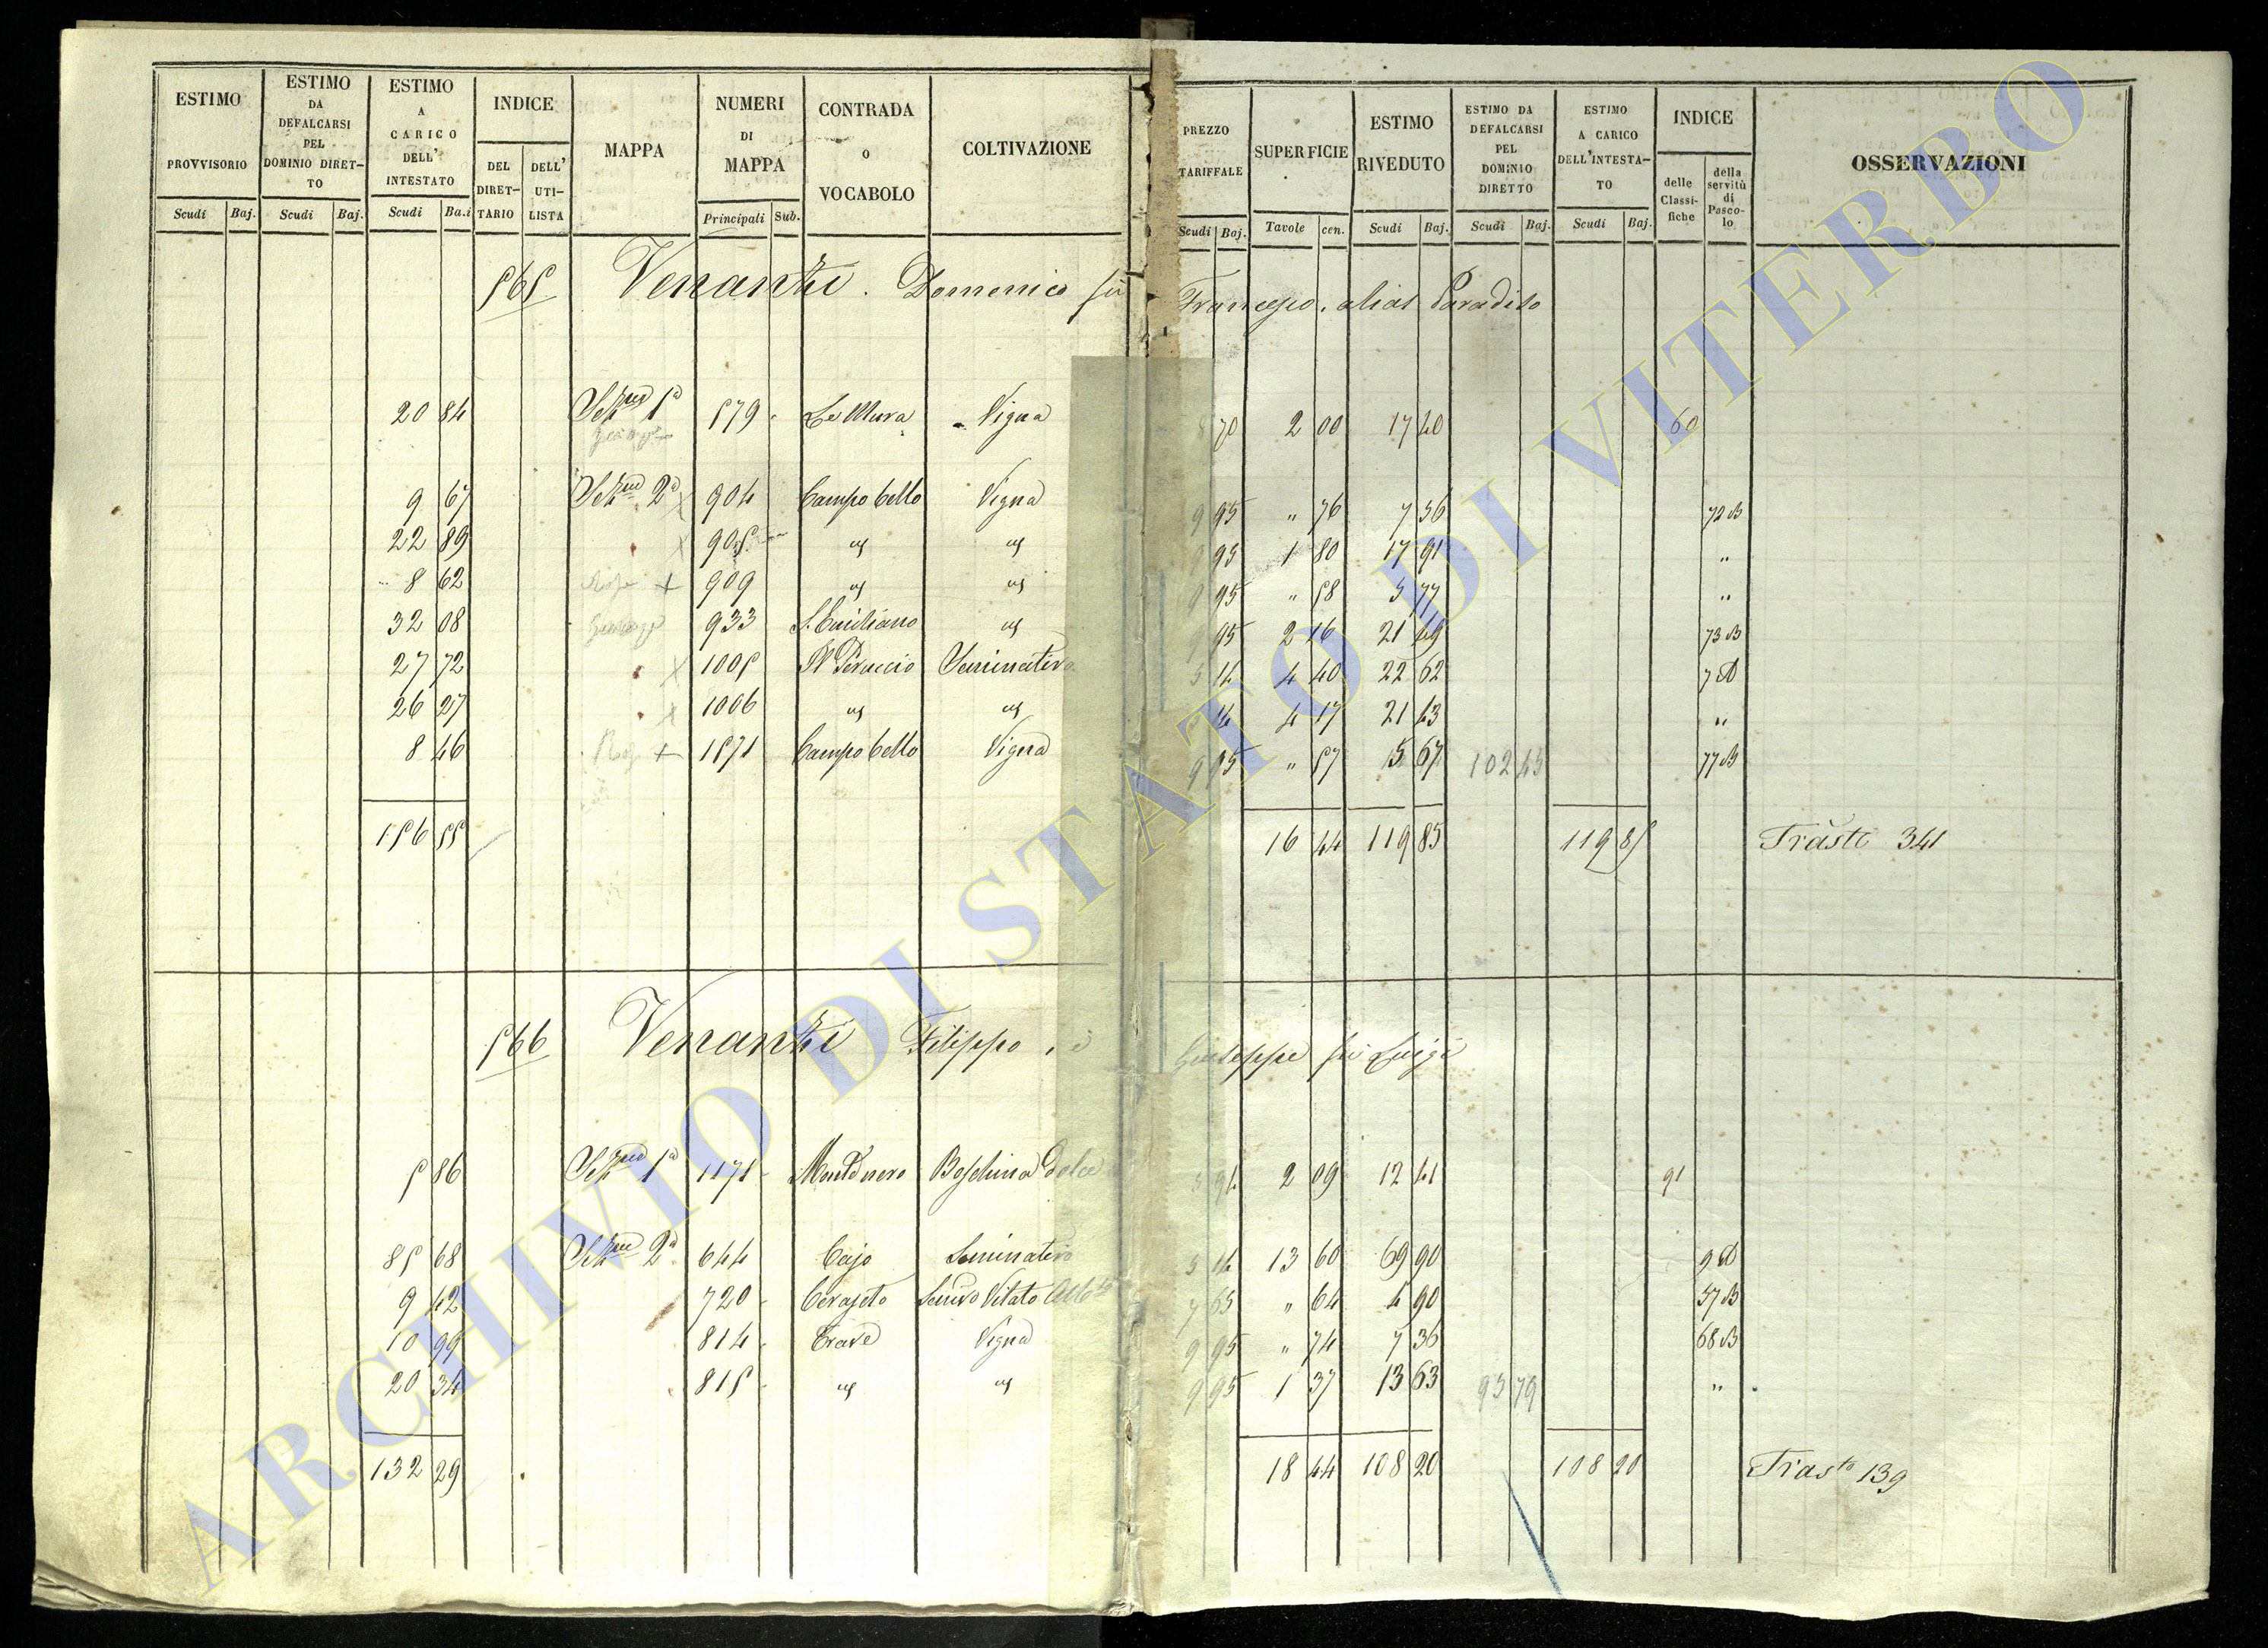 ESTIMO PROVVISORIO
Scudi Baj.
ESTIMO DA DEFALCARSI PEL DOMINIO DIRETTO
Scudi Baj.
ESTIMO A CARICO DELL' INTESTATO
Scudi Baj.
INDICE
DEL DIRETTARIO
DELL' UTILISTA
MAPPA
NUMERI DI MAPPA
Principali Sub.
CONTRADA O VOCABOLO
COLTIVAZIONE
PREZZO TARIFFALE
Scudi Baj.
SUPERFICIE
Tavole cen.
ESTIMO RIVEDUTO
Scudi Baj.
ESTIMO DA DEFALCARSI PEL DOMINIO DIRETTO
Scudi Baj.
ESTIMO A CARICO DELL'INTESTATO
Scudi Baj.
INDICE
delle Classifiche
della servitù di Pascolo
OSSERVAZIONI
565 Venanzi . Domenico fù Francesco . alias Paradiso
20 84 Sezne 1a 579 Le Mura Vigna 8 70 2 00 17 40 60
9 67 Sezne 2a 904 Campo bello Vigna 9 95 " 76 7 56 72 B
22 89 905 " " 9 95 1 80 17 91 "
8 62 + 909 " " 9 95 " 58 5 77 "
32 08 933 S. Emiliano " 9 95 2 16 21 49 73 B
27 72 1005 Il Peruccio Seminativo 5 14 4 40 22 62
26 27 1006 " " 5 14 4 17 21 43 "
8 46 + 1571 Campo bello Vigna 9 95 " 57 5 67 102 45 77 B
156 55 16 44 119 85 119 85 Trasto 341
566 Venanzi Filippo , e Giuseppe fù Luigi
5 86 Sezne 1a 1171 Monte nero Boschina dolce 5 94 2 09 12 41 91
85 68 Sezne 2a 644 Cajo Seminativo 5 14 13 60 69 90
9 42 720 Ceraseto Semvo Vitato 7 65 " 64 4 90 57 B
10 99 814 Trave Vigna 9 95 " 74 7 36 68 B
20 34 815 " " 9 95 1 37 13 63 95 79 "
132 29 18 44 108 20 108 20 Trasto 139
ARCHIVIO DI STATO DI VITERBO